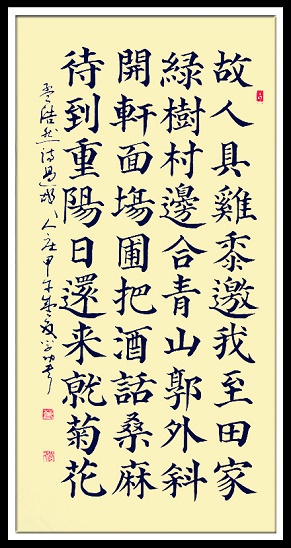 故人具雞黍邀我至田家
綠樹村邊合青山郭外斜
開軒面塲圃把酒話桑麻
待到重陽日還来就菊花
孟浩然诗過故人庄甲午